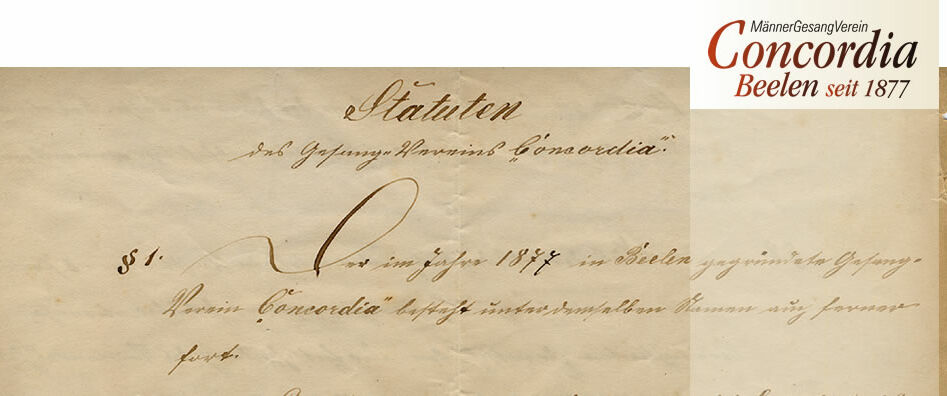 MännerGesangVerein
Concordia
Beelen seit 1877
Statuten
des Gesang-Vereins „Concordia“.
§ 1. Der im Jahre 1877 in Beelen gegründete Gesang-
Verein „Concordia“ besteht unter demselben Namen auch ferner
fort.